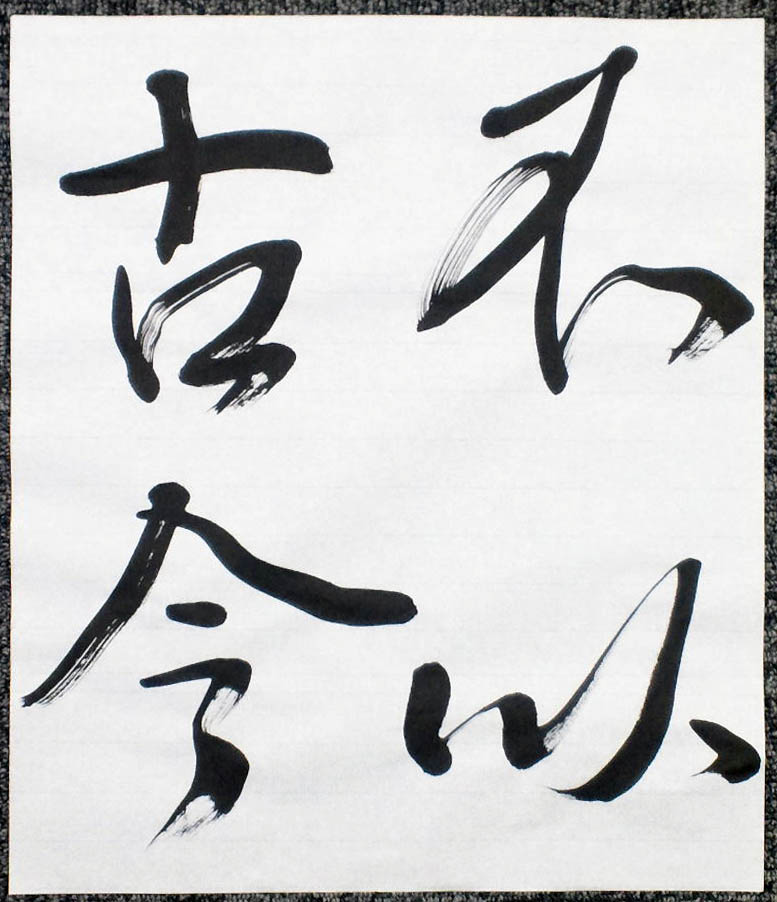 不以
古今